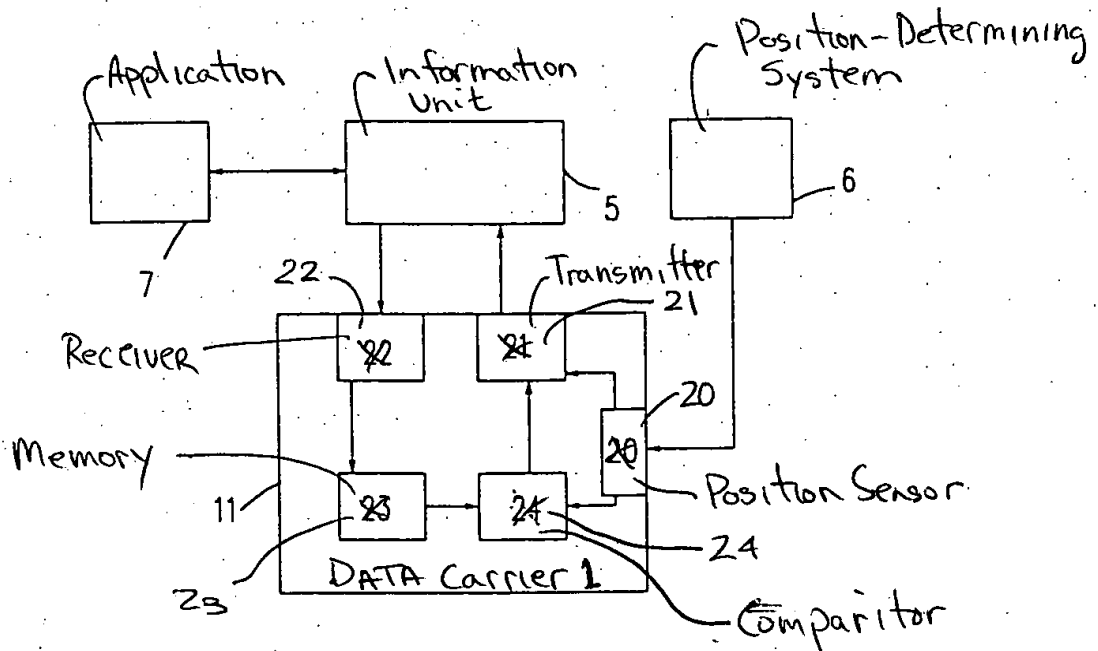 Application
Information
Unit
Position-Determining
System
5
6
7
22
Transmitter
21
Receiver
22
21
20
20
Memory
Position Sensor
11
23
24
24
23
DATA Carrier 1
Comparitor